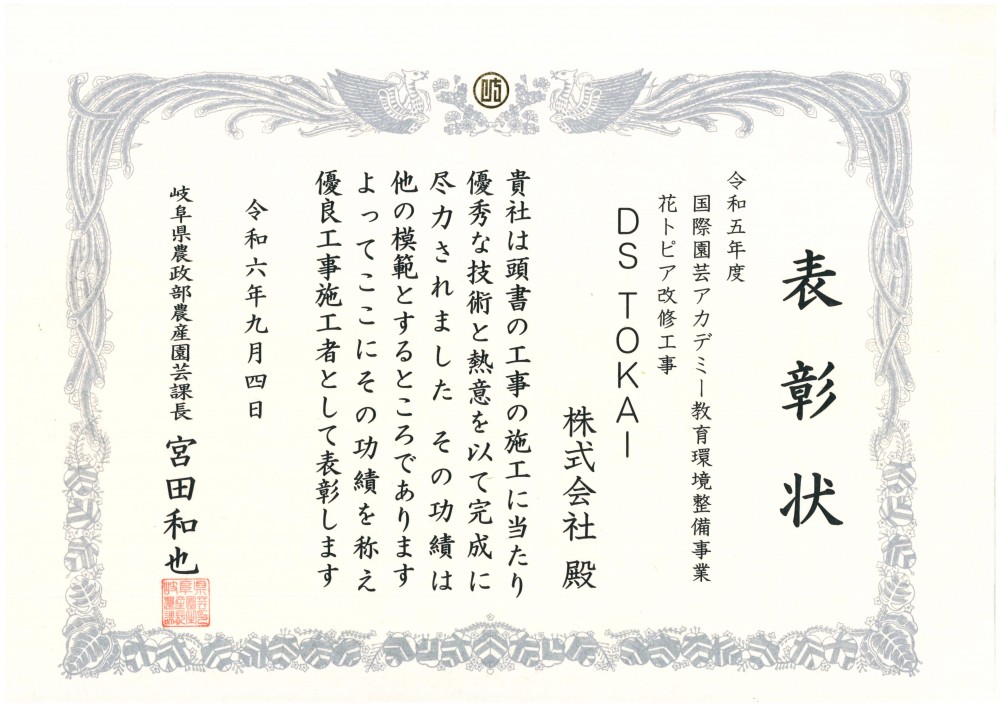 表彰状
令和五年度
国際園芸アカデミー教育環境整備事業
花トピア改修工事
DS TOKAI
株式会社 殿
貴社は頭書の工事の施工に当たり
優秀な技術と熱意を以て完成に
尽力されました その功績は
他の模範とするところであります
よってここにその功績を称え
優良工事施工者として表彰します
令和六年九月四日
岐阜県農政部農産園芸課長 宮田和也